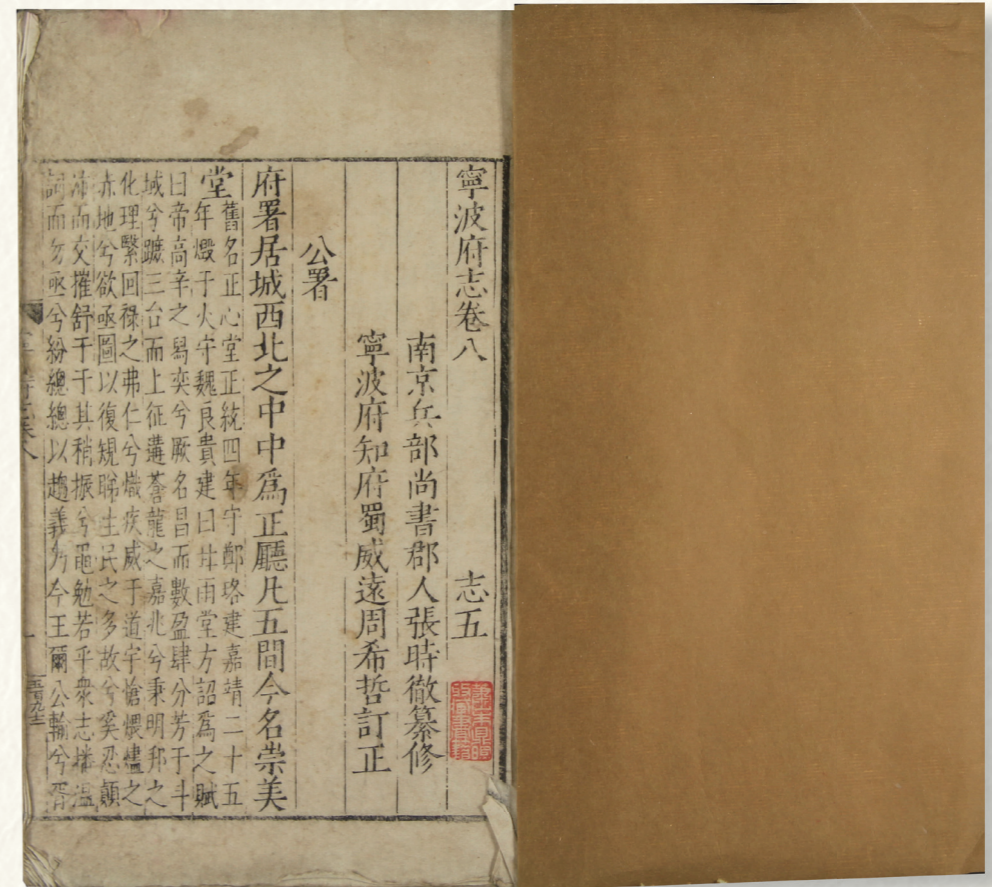 寧波府志卷八 志五
南京兵部尚書郡人張時徹纂修
寧波府知府蜀威遠周希哲訂正
公署
府署居城西北之中中爲正廳凡五間今名崇美
堂
舊名正心堂正統四年守鄭珞建嘉靖二十五
年燬于火守魏良貴建曰甘雨堂方詔爲之賦
曰帝高辛之舄奕兮厥名昌而數盈肆分芳于斗
域兮躔三台而上征遘蒼龍之嘉兆兮秉明邦之
化理繄回祿之弗仁兮熾疾威于道宇愴煨燼之
赤地兮欲亟圖以復規睇生民之多故兮奚忍顛
沛而交摧舒干于其稍振兮黽勉若乎衆志播溫
詞而勿亟兮紛總總以趨義兮今王爾公輸兮胥